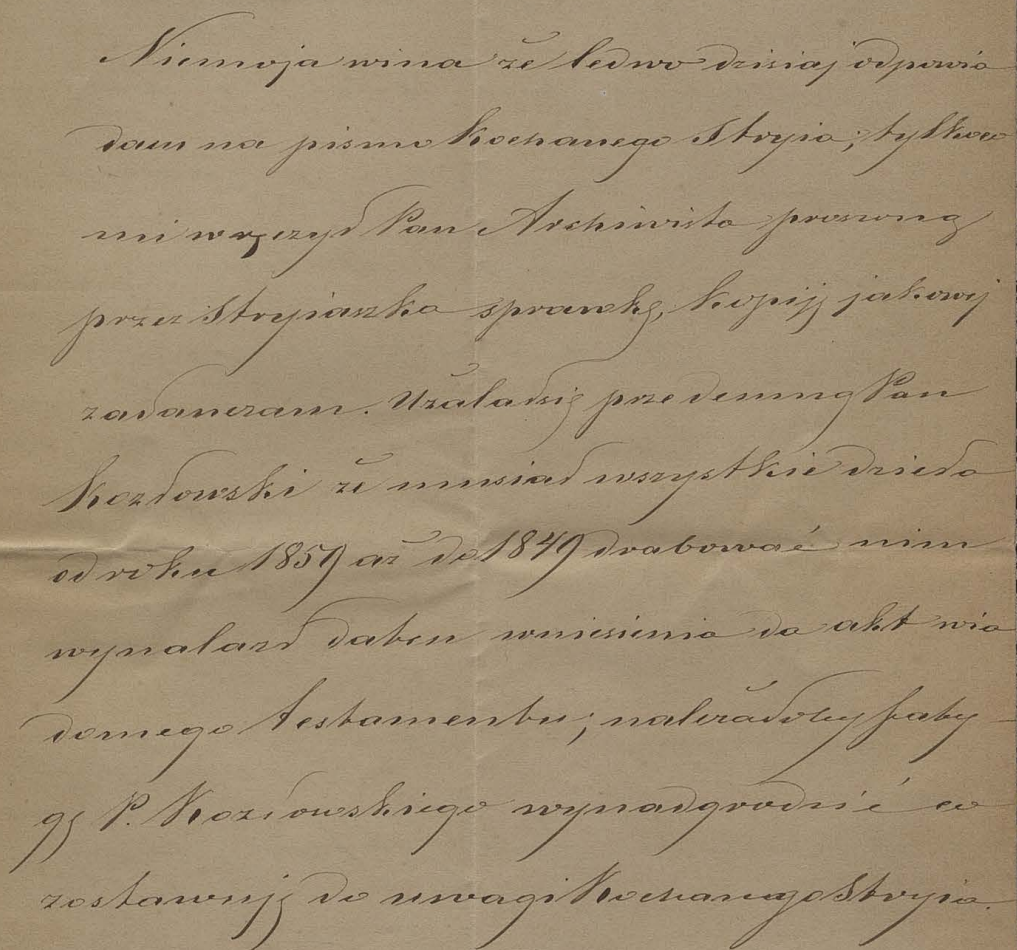 Niemoja wina że ledwo dzisiaj odpowia
dam na pismo Kochanego Stryia; tylkoco
mi wręczył Pan Archiwista proszoną
przez Stryiaszka sprawkę, kopiję jakowej
załanczam. Użalał się przedemną Pan
Kozłowski że musiał wszystkie dzieła
od roku 1859 aż do 1849 drabować nim
wynalazł datum wniesienia do akt wia
domego testamentu; należałoby faty-
gę P. Kozłowskiego wynadgrodzić co
zostawuję do uwagi Kochanego Stryia.